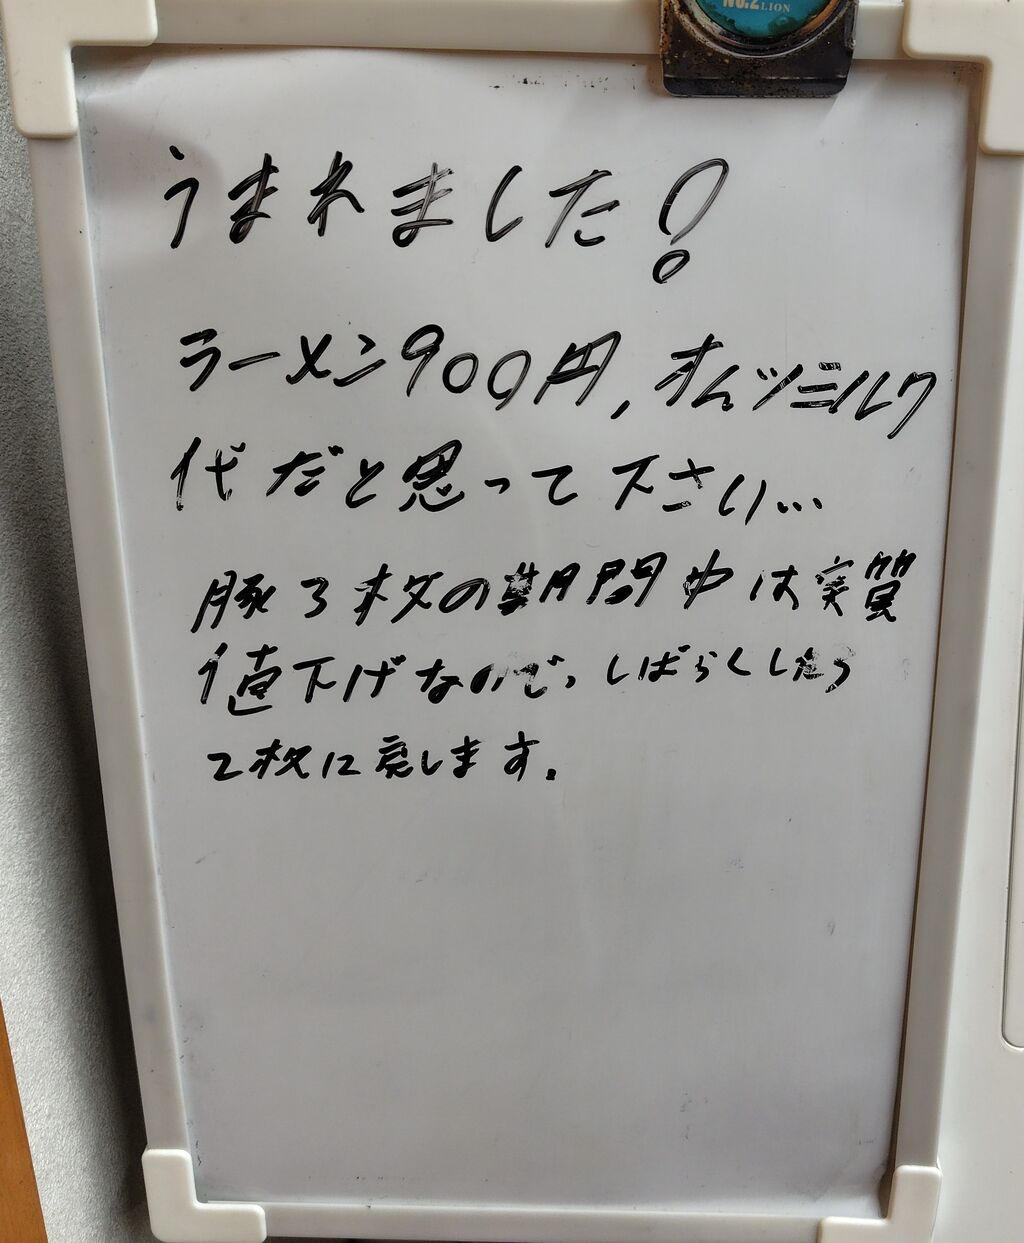 No.2 LION
うまれました!
ラーメン900円,オムツミルク
代だと思って下さい…
豚3枚の期間中は実質
値下げなので、しばらくしたら
2枚に戻します。